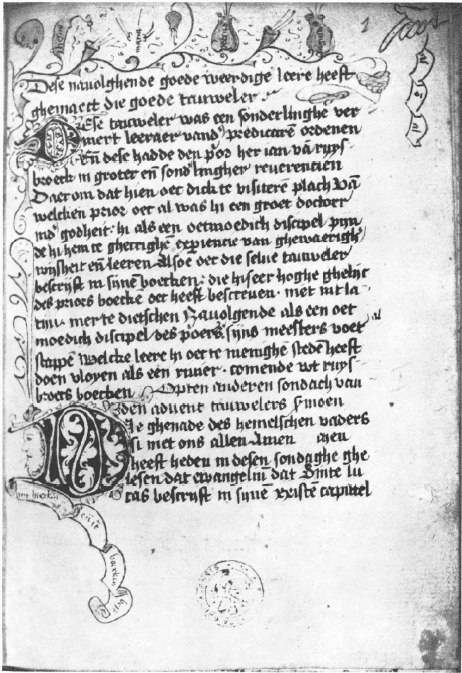 1
Dese navolghende goede weerdige leere heeft
ghemaect die goede tauweler
Dese tauweler was een sonderlinghe ver
mert leeraer vand' predicaren ordenen
En̄ dese hadde den p'or her ian vā ruys
broeck in groter en̄ sond'lingher reverentien
Daer om dat hien oec dick te visiterē plach vā
welcken prior oec al was hi een groet doctoer
ind' godheit · hi als een oetmoedich discipel
de hi hem te ghecrighē
wijsheit en̄ leeren Alsoe oec die selue tauweler
bescrijft in sijnē boecken · die hi seer hoghe
des priors boecke oec heeft bescreven · met
mer te dietschen Navolgende als een oet
moedich discipel des p'oers sijns meesters voet
stappē welcke leere hi oec te menighe stedē heeft
doen vloyen als een rivier · comende wt ruys
broers boecken Opten anderen sondach van
den advent tauwelers s'moen
Die ghenade des hemelschen vaders
si met ons allen Amen
heeft heden in desen sondaghe ghe
lesen dat ewangeliū dat Sinte lu
cas bescrijft in sijnē capittel